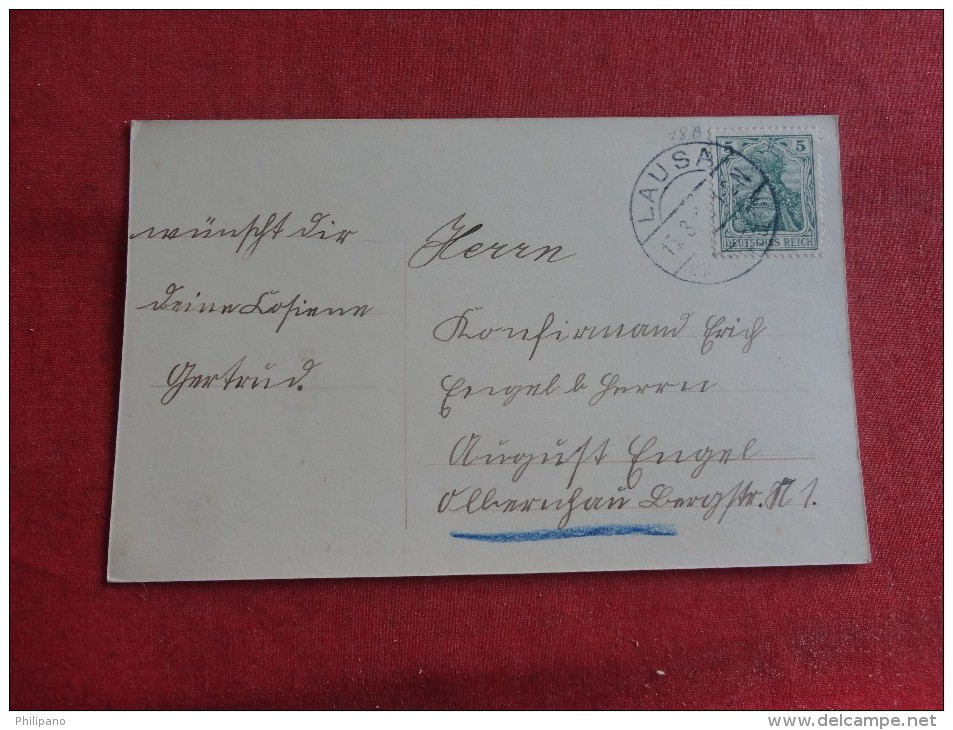 wünscht dir
deine Cosiene
Gertrud.
Herrn
Konfirmand Erich
Engel b Herrn
August Engel
Olbernhau Bergstr. N 1.
LAUSA
5 5
DEUTSCHES REICH
Philipano
www.delcampe.net